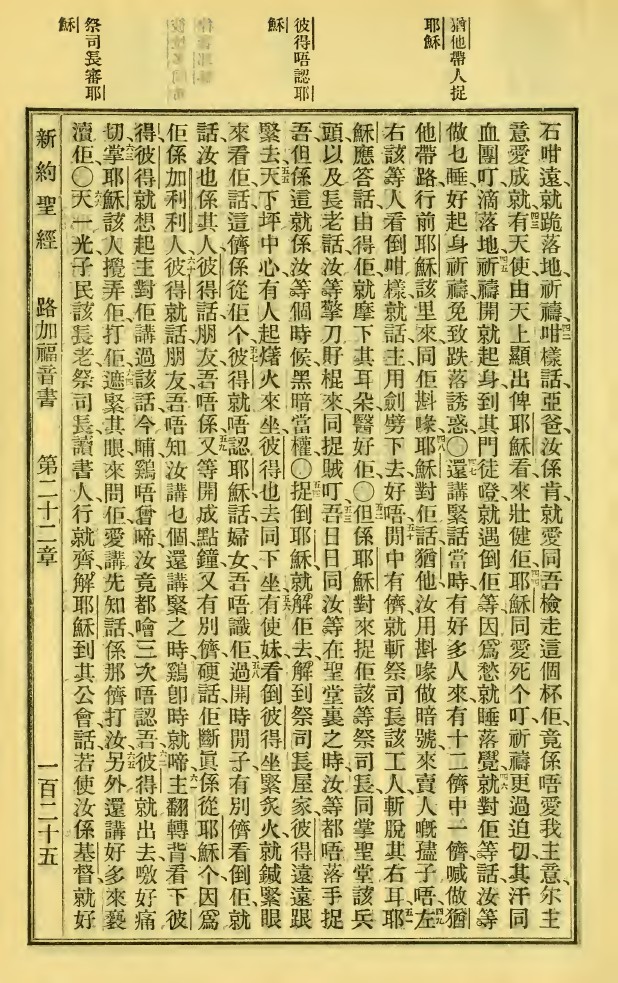 猶他帶人捉
耶穌
彼得唔認耶
穌
祭司長審耶
穌
石咁遠就跪落地祈禱咁樣話亞爸汝係肯就愛同吾檢走這個杯佢竟係唔愛我主意尔主
意愛成就有天使由天上顯出俾耶穌看來壯健佢耶穌同愛死个叮祈禱更過迫切其汗同
血團叮滴落地祈禱開就起身到其門徒嶝就遇倒佢等因爲愁就睡落覺就對佢等話汝等
做乜睡好起身祈禱免致跌落誘惑〇還講緊話當時有好多人來有十二儕中一儕喊做猶
他帶路行前耶穌該里來同佢斟喙耶穌對佢話猶他汝用斟喙做暗號來賣人嘅孻子唔左
右該等人看倒咁樣就話主用劍劈下去好唔閒中有儕就斬祭司長該工人斬脫其右耳耶
穌應答話由得佢就摩下其耳朵醫好佢〇但係耶穌對來捉佢該等祭司長同掌聖堂該兵
頭以及長老話汝等擎刀財棍來同捉賊叮吾日日同汝等在聖堂裏之時汝等都唔落手捉
吾但係這就係汝等個時候黑暗當權〇捉倒耶穌就解佢去解到祭司長屋家彼得遠遠跟
緊去天下坪中心有人起熶火來坐彼得也去同下坐有使妹看倒彼得坐緊炙火就鍼緊眼
來看佢話這儕係從佢个彼得就唔認耶穌話婦女吾唔識佢過開時閒子有別儕看倒佢就
話汝也係其人彼得話朋友吾唔係又等開成點鐘又有別儕硬話佢斷眞係從耶穌个因爲
佢係加利利人彼得就話朋友吾唔知汝講乜個還講緊之時鷄卽時就啼主翻轉背看下彼
得彼得就想起主對佢講過該話今晡鷄唔曾啼汝竟都噲三次唔認吾彼得就出去噭好痛
切掌耶穌該人攪弄佢打佢遮緊其眼來問佢愛講先知話係那儕打汝另外還講好多來褻
瀆佢〇天一光子民該長老祭司長讀書人行就齊解耶穌到其公會話若使汝係基督就好
新約聖經 路加福音書 第二十二章 一百二十五